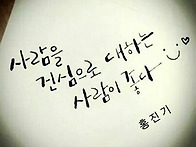 사람을
진심으로 대하는
사람이 좋다
홍진기